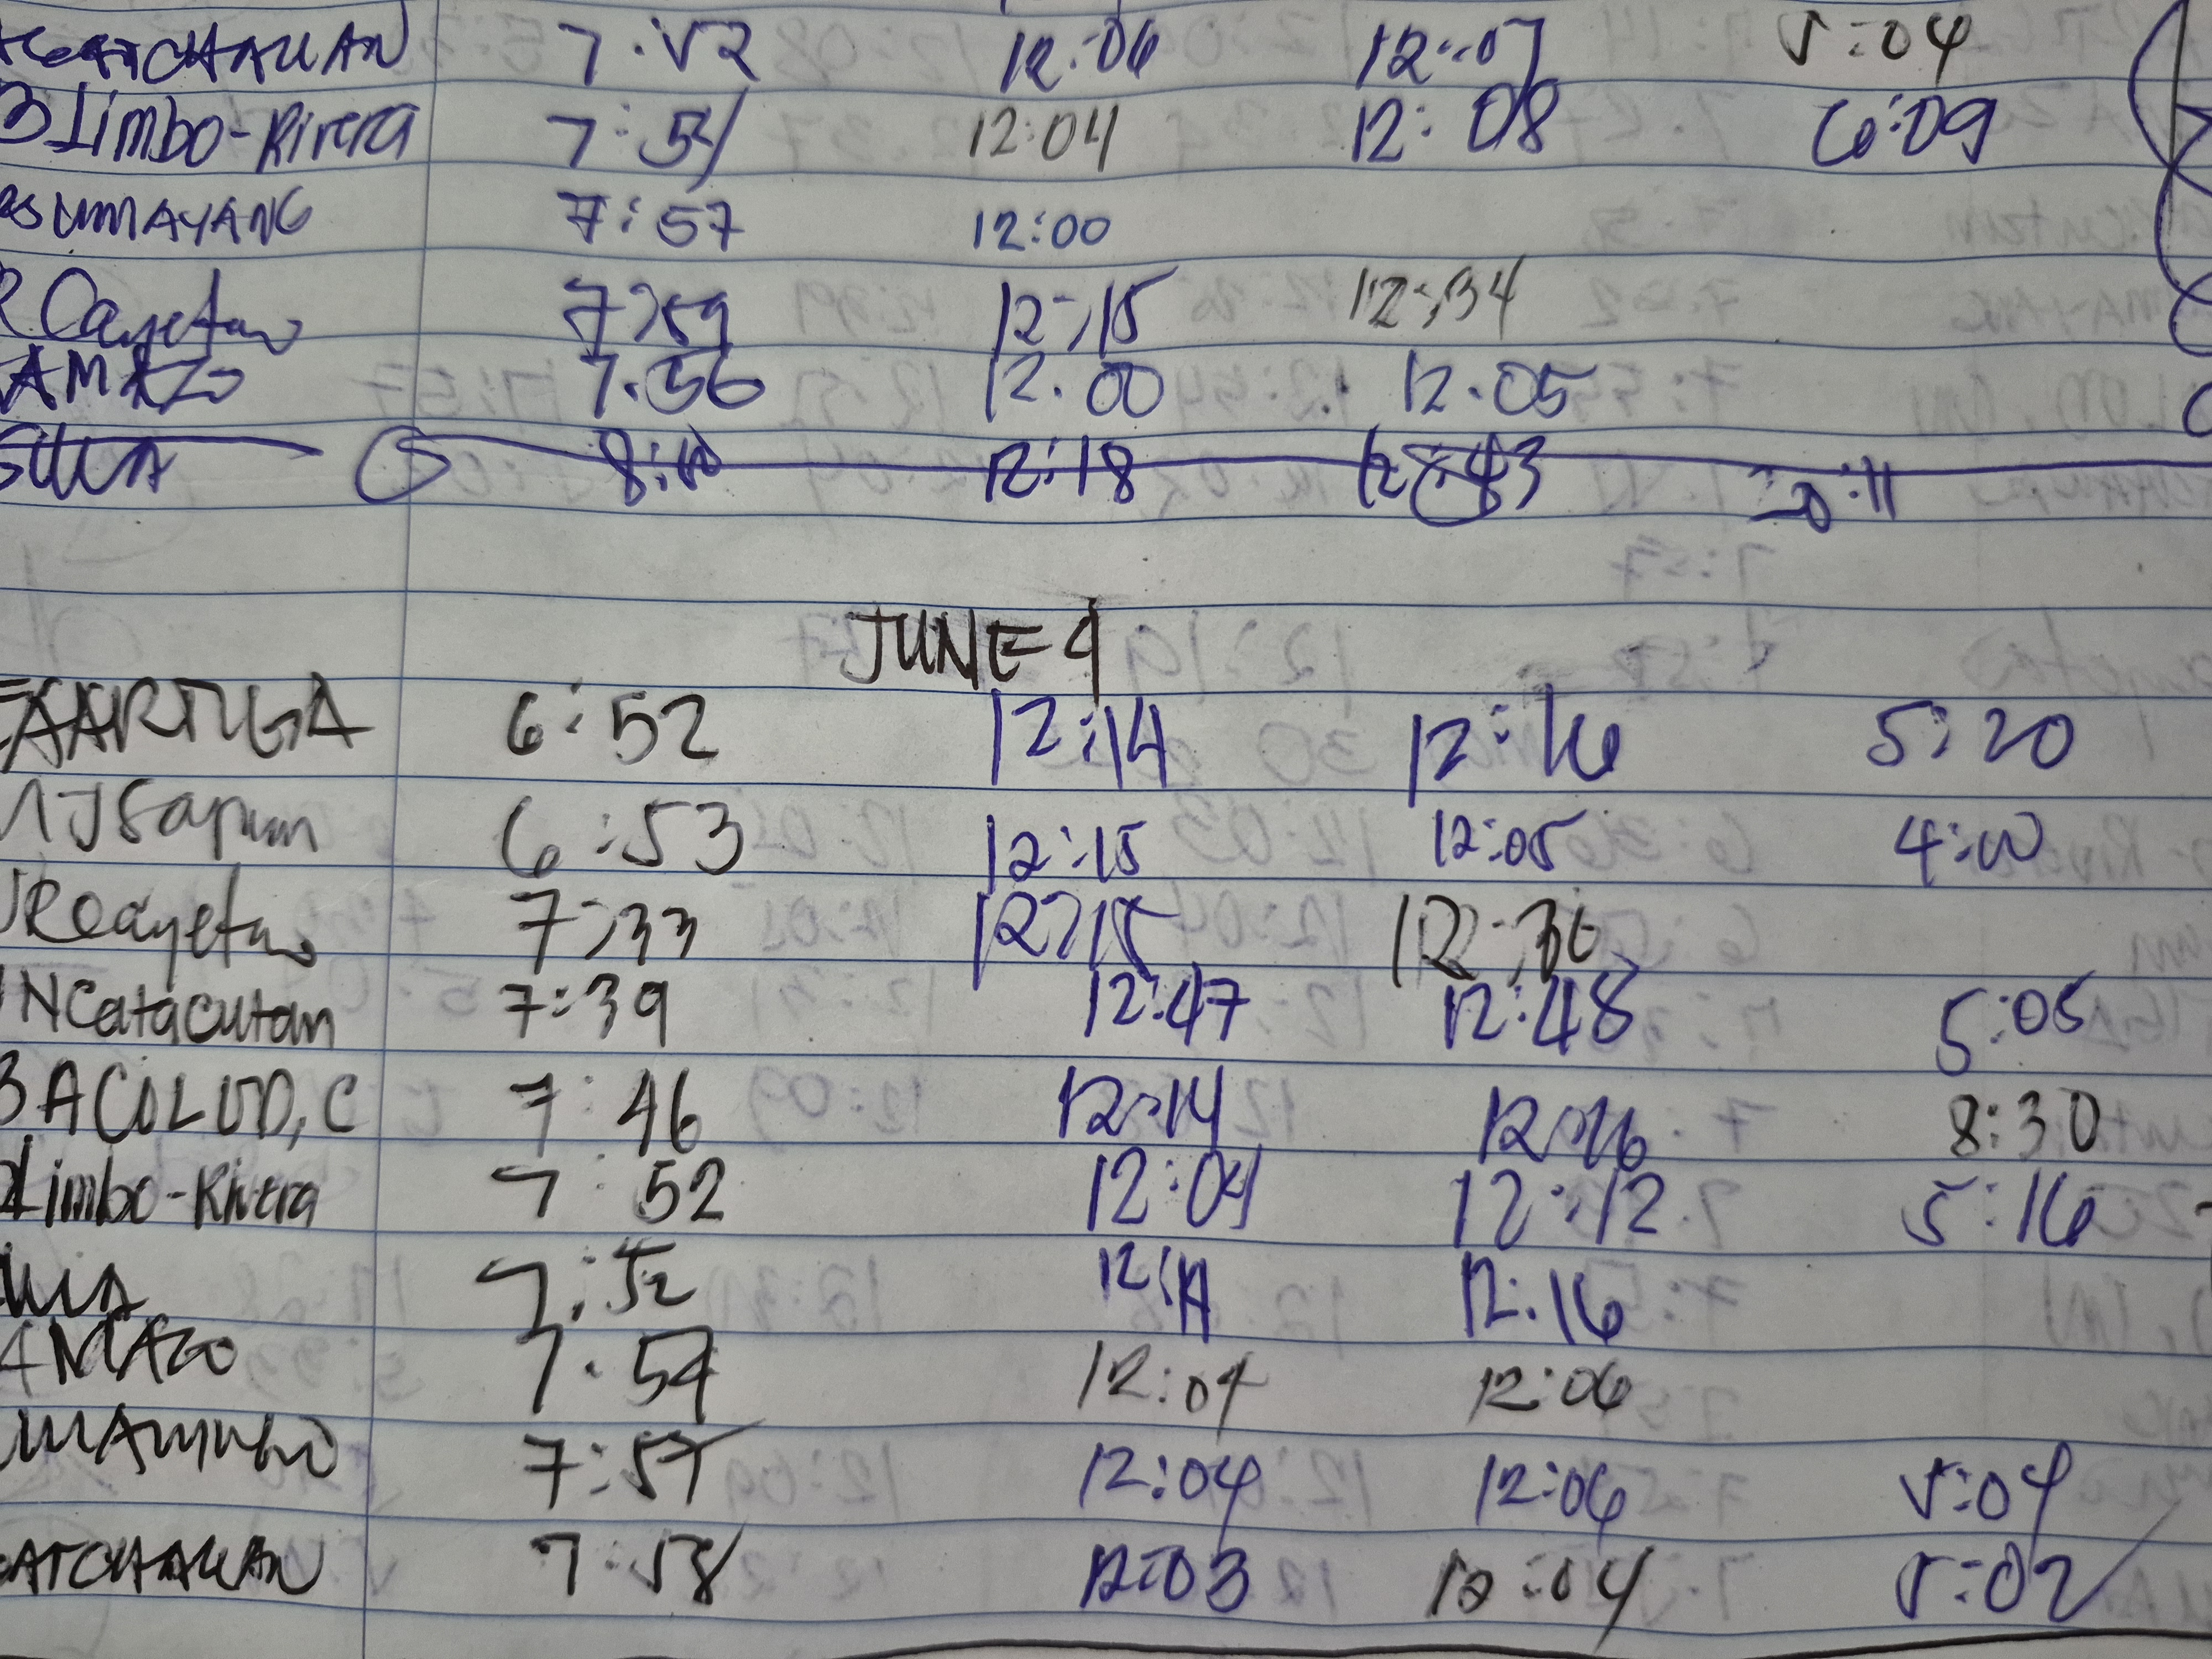 GATCHALIAN 7:52 12:06 12:07 5:04
BLimbo-Rivera 7:54 12:04 12:08 6:09
SUMAYANG 7:57 12:00
R Cayetano 7:59 12:15 12:34
AMAZO 7.56 12.00 12.05
12:18
JUNE 9
EAARTUGA 6:52 12:14 12:16 5:20
6:53 12:15 12:05 4:00
JRCayetano 7:33 12:15
NCatacutan 7:39 12:47 12:48 5:05
BACOLOD, C 7:46 12:14 12:16 8:30
Limbo-Rivera 7:52 12:04 12:12 5:16
7:52 12:14 12:16
AMAZO 7.54 12:04 12:06
7:57 12:04 12:06 5:04
GATCHALIAN 7:58 12:03 12:04 5:02